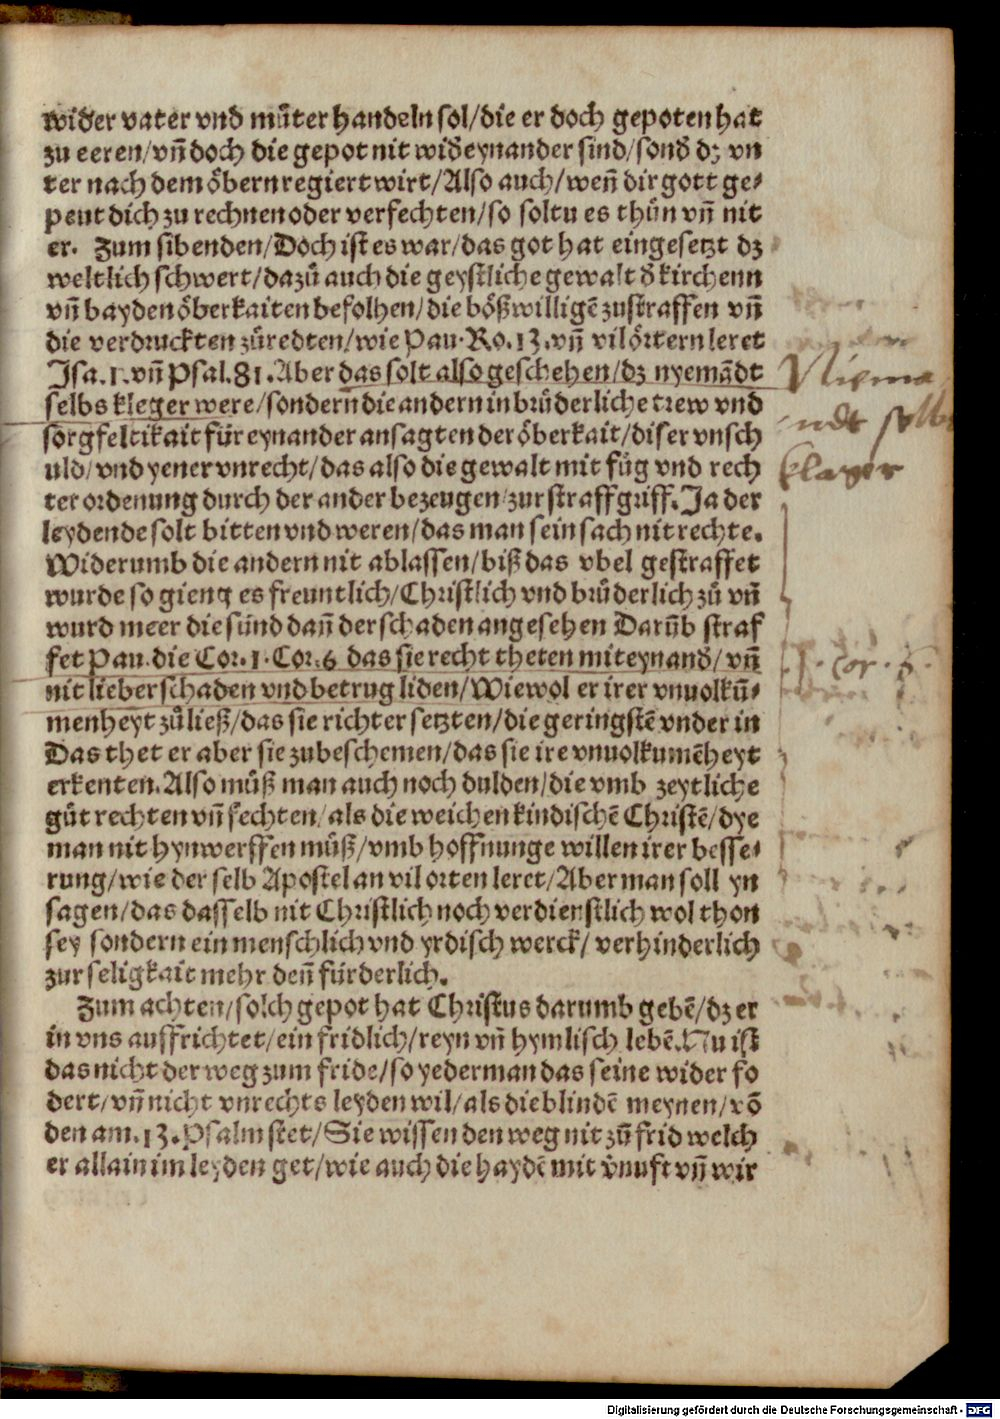 wider vater vnd můter handeln sol/die er doch gepoten hat
zu eeren/vñ doch die gepot nit widͤ eynander sind/sondͤ dz vn
ter nach dem öbern regiert wirt/Also auch/weñ dir gott ge⸗
peut dich zu rechnen oder verfechten/so soltu es thůn vñ nit
er. Zum sibenden/Doch ist es war/das got hat eingesetzt dz
weltlich schwert/dazů auch die geystliche gewalt dͤ kirchenn
vñ bayden öberkaiten befolhen/die bößwilligē zustraffen vñ
die verdruckten zůredten/wie Pau. Ro. 13. vñ vil örtern leret
Isa. 1. vñ Psal. 81. Aber das solt also geschehen/dz nyemãdt
selbs kleger were/sondern die andern in brůderliche trew vnd
sorgfeltikait für eynander ansagten der öberkait/diser vnsch
uld/vnd yener vnrecht/das also die gewalt mit fůg vnd rech
ter ordenung durch der ander bezeugen/zur straff griff. Ja der
leydende solt bitten vnd weren/das man sein sach nit rechte.
Widerumb die andern nit ablassen/biß das vbel gestraffet
wurde so gieng es freuntlich/Christlich vnd brůderlich zů vñ
wurd meer die sünd dañ der schaden angesehen Darũb straf
fet Pau. die Cor. 1. Cor. 6 das sie recht theten mit eynandͤ/vñ
nit lieber schaden vnd betrug liden/Wiewol er irer vnuolkũ⸗
menheyt zůließ/das sie richter setzten/die geringstē vnder in
Das thet er aber sie zubeschemen/das sie ire vnuolkumēheyt
erkenten. Also můß man auch noch dulden/die vmb zeytliche
gůt rechten vñ fechten/als die weichen kindischē Christē/dye
man nit hynwerffen můß/vmb hoffnunge willen irer besse⸗
rung/wie der selb Apostel an vil orten leret/Aber man soll yn
sagen/das dasselb nit Christlich noch verdienstlich wol thon
sey sondern ein menschlich vnd yrdisch werck/ verhinderlich
zur seligkait mehr deñ fürderlich.
Zum achten/solch gepot hat Christus darumb gebē/dz er
in vns auffrichtet/ein fridlich/reyn vñ hymlisch lebē. Nu ist
das nicht der weg zum fride/so yederman das seine wider fo
dert/vñ nicht vnrechts leyden wil/als die blindē meynen/võ
den am. 13. Psalm stet/Sie wissen den weg nit zů frid welch
er allain im leyden get/wie auch die haydē mit v̈nuft vñ wir
Niema
ndt selbs
klager
1. Cor. 6.
Digitalisierung gefördert durch die Deutsche Forschungsgemeinschaft - DFG